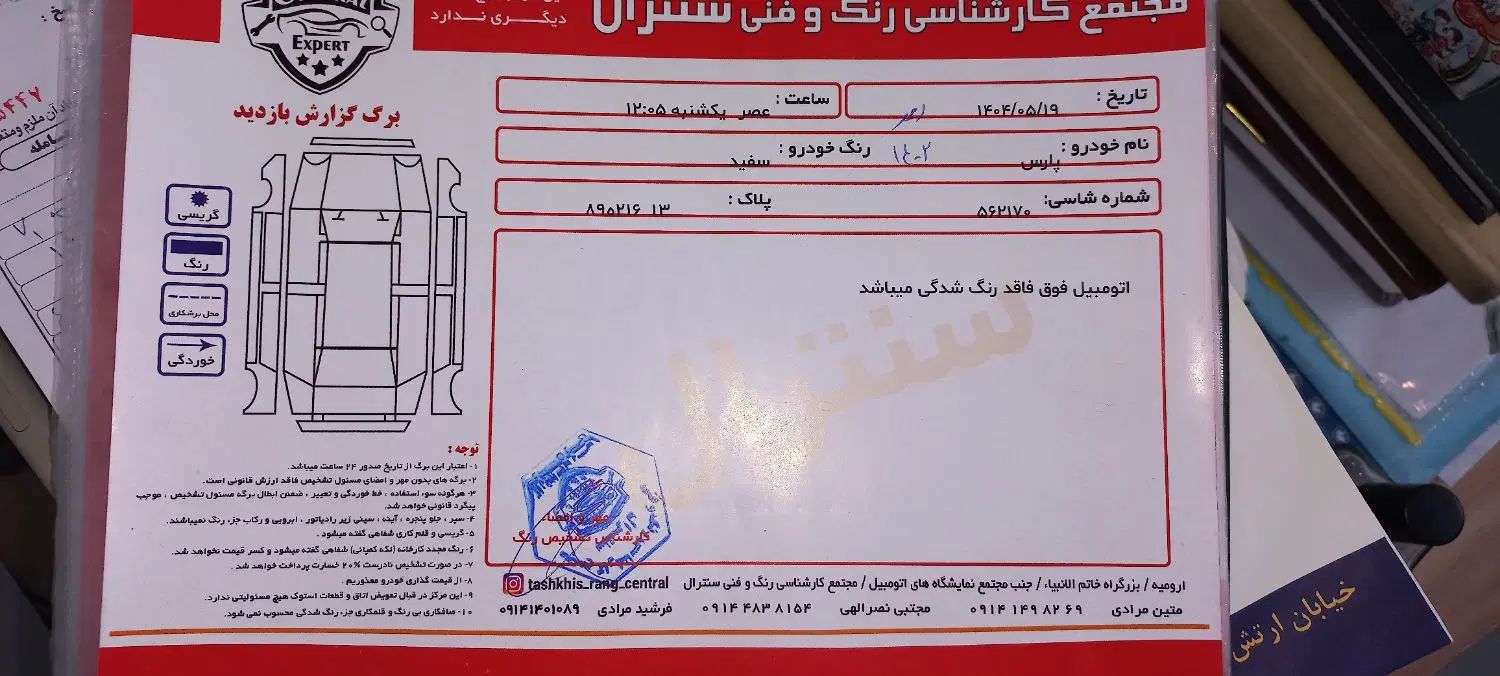 مجتمع کارشناسی رنگ و فنی سنترال
دیگری ندارد
EXPERT
برگ گزارش بازدید
تاریخ : ۱۴۰۴/۰۵/۱۹
ساعت : عصر یکشنبه ۱۲:۰۵
نام خودرو : پارس
رنگ خودرو : سفید
شماره شاسی: ۵۶۲۱۷۰
پلاک : ۸۹۵۲۱۶ ۱۳
گریسی
رنگ
محل برشکاری
خوردگی
اتومبیل فوق فاقد رنگ شدگی میباشد
سنترال
توجه :
۱- اعتبار این برگ از تاریخ صدور ۲۴ ساعت میباشد.
۲- برگه های بدون مهر و امضای مسئول تشخیص فاقد ارزش قانونی است.
۳- هرگونه سوء استفاده ، خط خوردگی و تعبیر ، ضمن ابطال برگه مسئول تشخیص ، موجب
پیگرد قانونی خواهد شد.
۴- سپر ، جلو پنجره ، آینه ، سینی زیر رادیاتور ، ابرویی و رکاب جزء رنگ نمیباشند.
۵- گریسی و قلم کاری شفاهی گفته میشود .
۶- رنگ مجدد کارخانه (لکه کمپانی) شفاهی گفته میشود و کسر قیمت نخواهد شد.
۷- در صورت تشخیص نادرست ۲۰% خسارت پرداخت خواهد شد .
۸- از قیمت گذاری خودرو معذوریم .
۹- این مرکز در قبال تعویض اتاق و قطعات استوک هیچ مسئولیتی ندارد.
۱۰- صافکاری بی رنگ و قلمکاری جزء رنگ شدگی محسوب نمی شود.
مهر و امضاء
کارشناس تشخیص رنگ
ارومیه / بزرگراه خاتم الانبیاء / جنب مجتمع نمایشگاه های اتومبیل / مجتمع کارشناسی رنگ و فنی سنترال tashkhis_rang_central
متین مرادی ۰۹۱۴ ۱۴۹ ۸۲ ۶۹ مجتبی نصرالهی ۰۹۱۴ ۴۸۳ ۸۱۵۴ فرشید مرادی ۰۹۱۴۱۴۰۱۰۸۹
خیابان ارتش